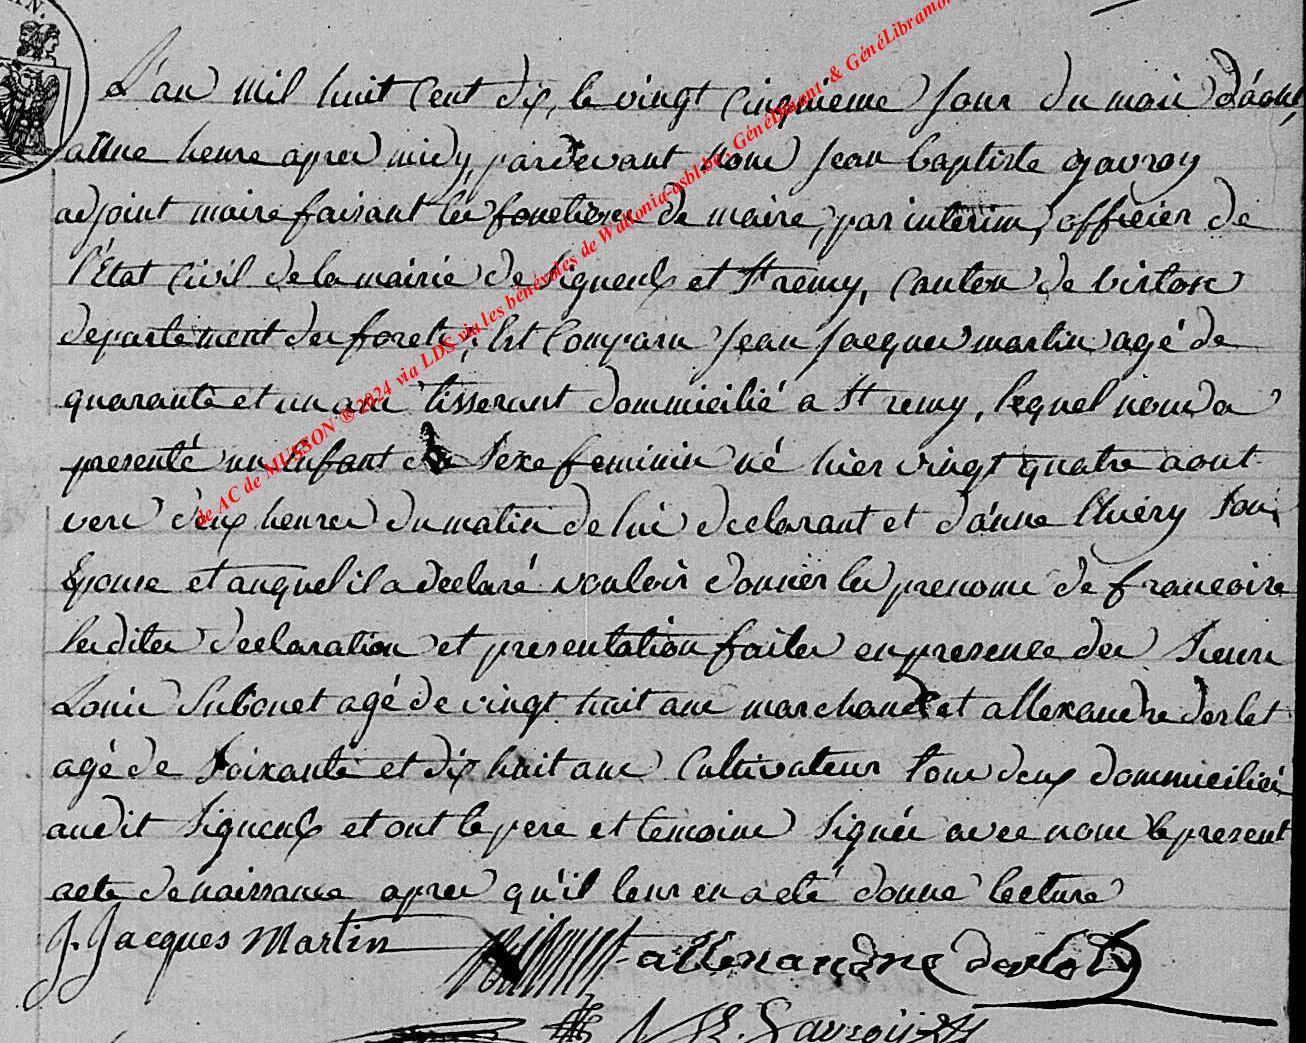 L'an mil huit cent dix, le vingt cinquieme jour du mois d'aout,
a une heure apres midy, pardevant nous jean baptiste gavroy
adjoint maire faisant les fonctions de maire, par interim, officier de
l'Etat Civil de la mairie de Signeulx et St remy, Canton de virton
departement des forets, Est Comparu jean jacques martin agé de
quarante et un ans tisserant dommicilié a St remy, lequel nous a
presenté un Enfant du Sexe feminin né hier vingt quatre aout
vers deux heures du matin de lui declarant et d'anne thiery Son
Epouse et auquel il a declaré vouloir donner les prenoms de francoise
lesdites declaration et presentation faites en presence des Sieurs
Louis Subonet agé de vingt huit ans marchand et allexandre derlet
agé de Soixante et dix huit ans Cultivateur tous deux dommiciliés
audit Signeulx et ont le pere et temoins Signés avec nous le present
acte de naissance apres qu'il leur en a eté donné lecture
J. Jacques Martin
allexandre derlet
Gavroy
de AC de MUSSON ® 2024 via LDS via les bénévoles de Wallonia-asbl.be, GénéDinant & GénéLibramon